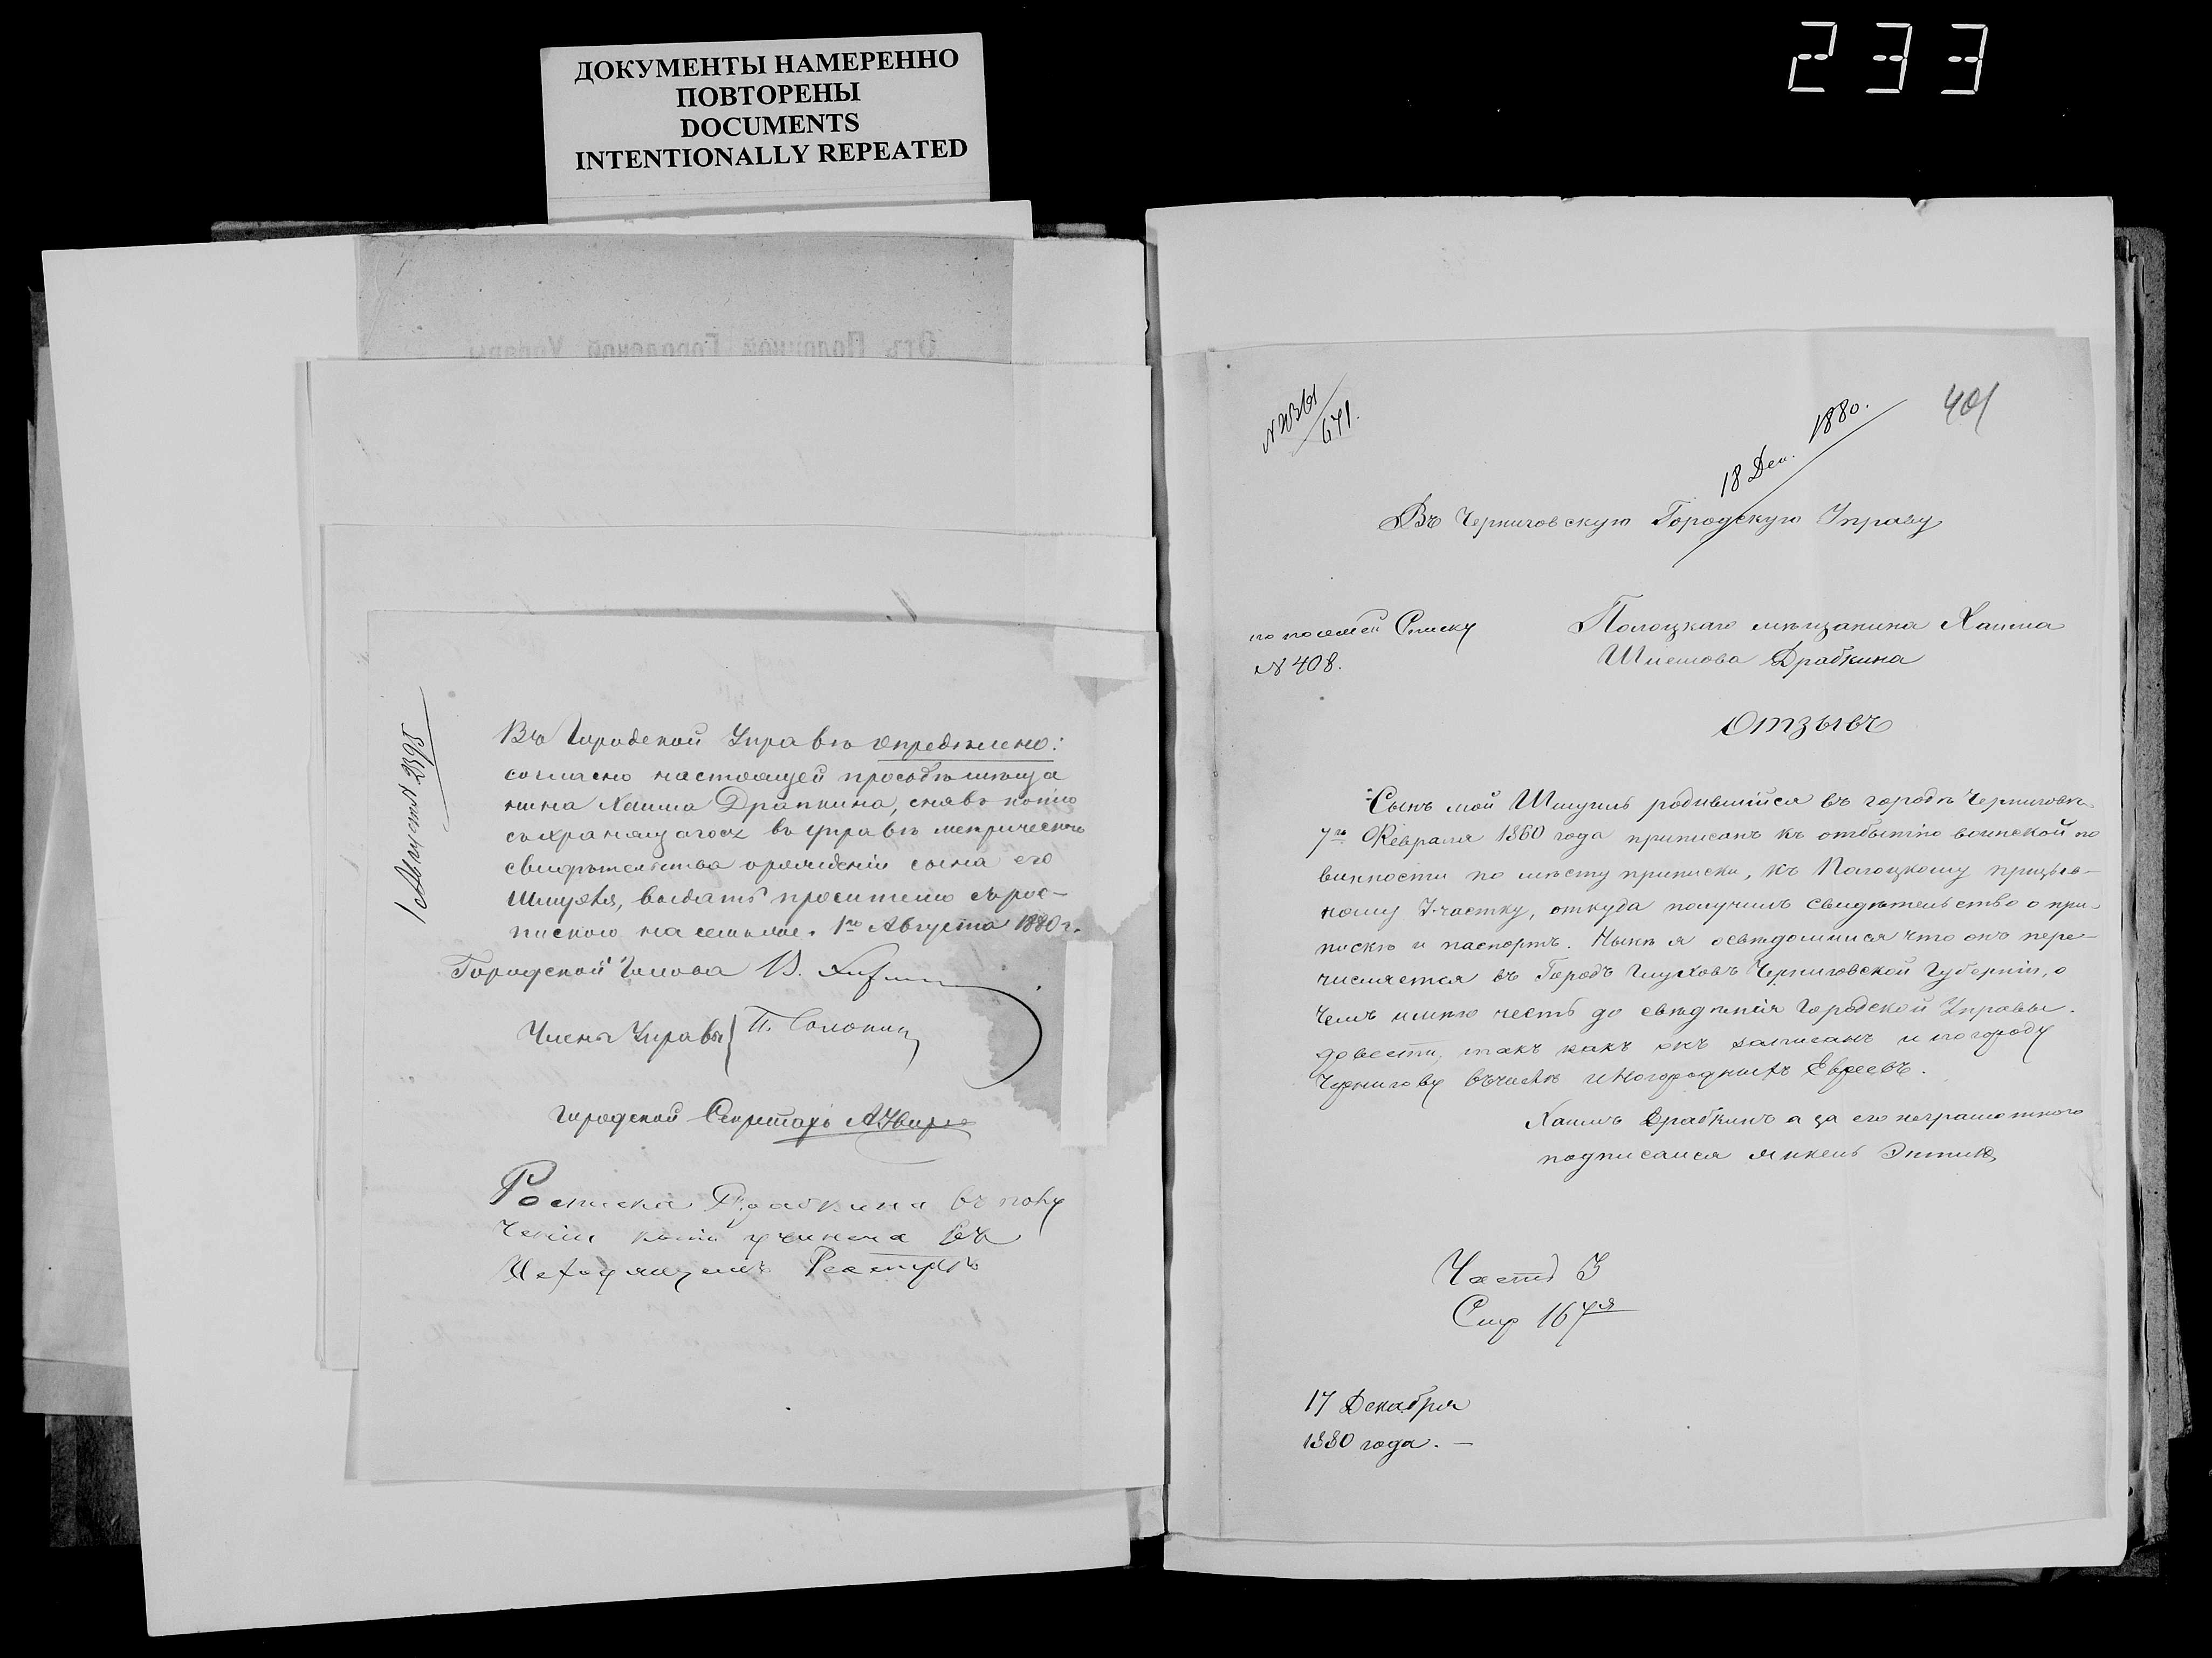 233
ДОКУМЕНТЫ НАМЕРЕННО
ПОВТОРЕНЫ
DOCUMENTS
INTENTIONALLY REPEATED
Отъ Полоцкой Городской Управы
1 Августа № 2395
Въ Городской Управѣ опредѣлено:
согласно настоящей просьбѣ мѣща
нина Хаима Драпкина, снявъ копію
съ хранящагося въ управѣ метрическаго
свидѣтельства о рожденіи сына его
Шмуля, выдать просителю съ рос-
пискою на семъ же. 1го Августа 1880 г.
Городской Голова В.
Члены Управы П. Солонин
Городской Секретарь А.
Росписка Драбкина въ полу
ченіи копіи учинена въ
Исходящемъ Реестрѣ
671.
18 Дек. 1880.
401
Въ Черниговскую Городскую Управу
по посемей Списку
№ 408.
Полоцкаго мѣщанина Хаима
Драбкина
Отзывъ
Сынъ мой Шмуиль родившійся въ городѣ Черниговѣ
7го Февраля 1860 года приписанъ къ отбытію воинской по
винности по мѣсту приписки, къ Полоцкому призыв-
ному Участку, откуда получилъ свидѣтельство о при-
пискѣ и паспортъ. Нынѣ я освѣдомился что онъ пере-
числяется въ Городъ Глуховъ Черниговской Губерніи, о
чемъ имѣю честь до свѣдѣнія Городской Управы
довести, такъ какъ онъ записанъ и по городу
Чернигову въ числѣ иногородныхъ Евреевъ.
Хаимъ Драбкинъ а за его неграмотного
подписался Янкель
Часть 3
Стр 167я
17 Декабря
1880 года. —